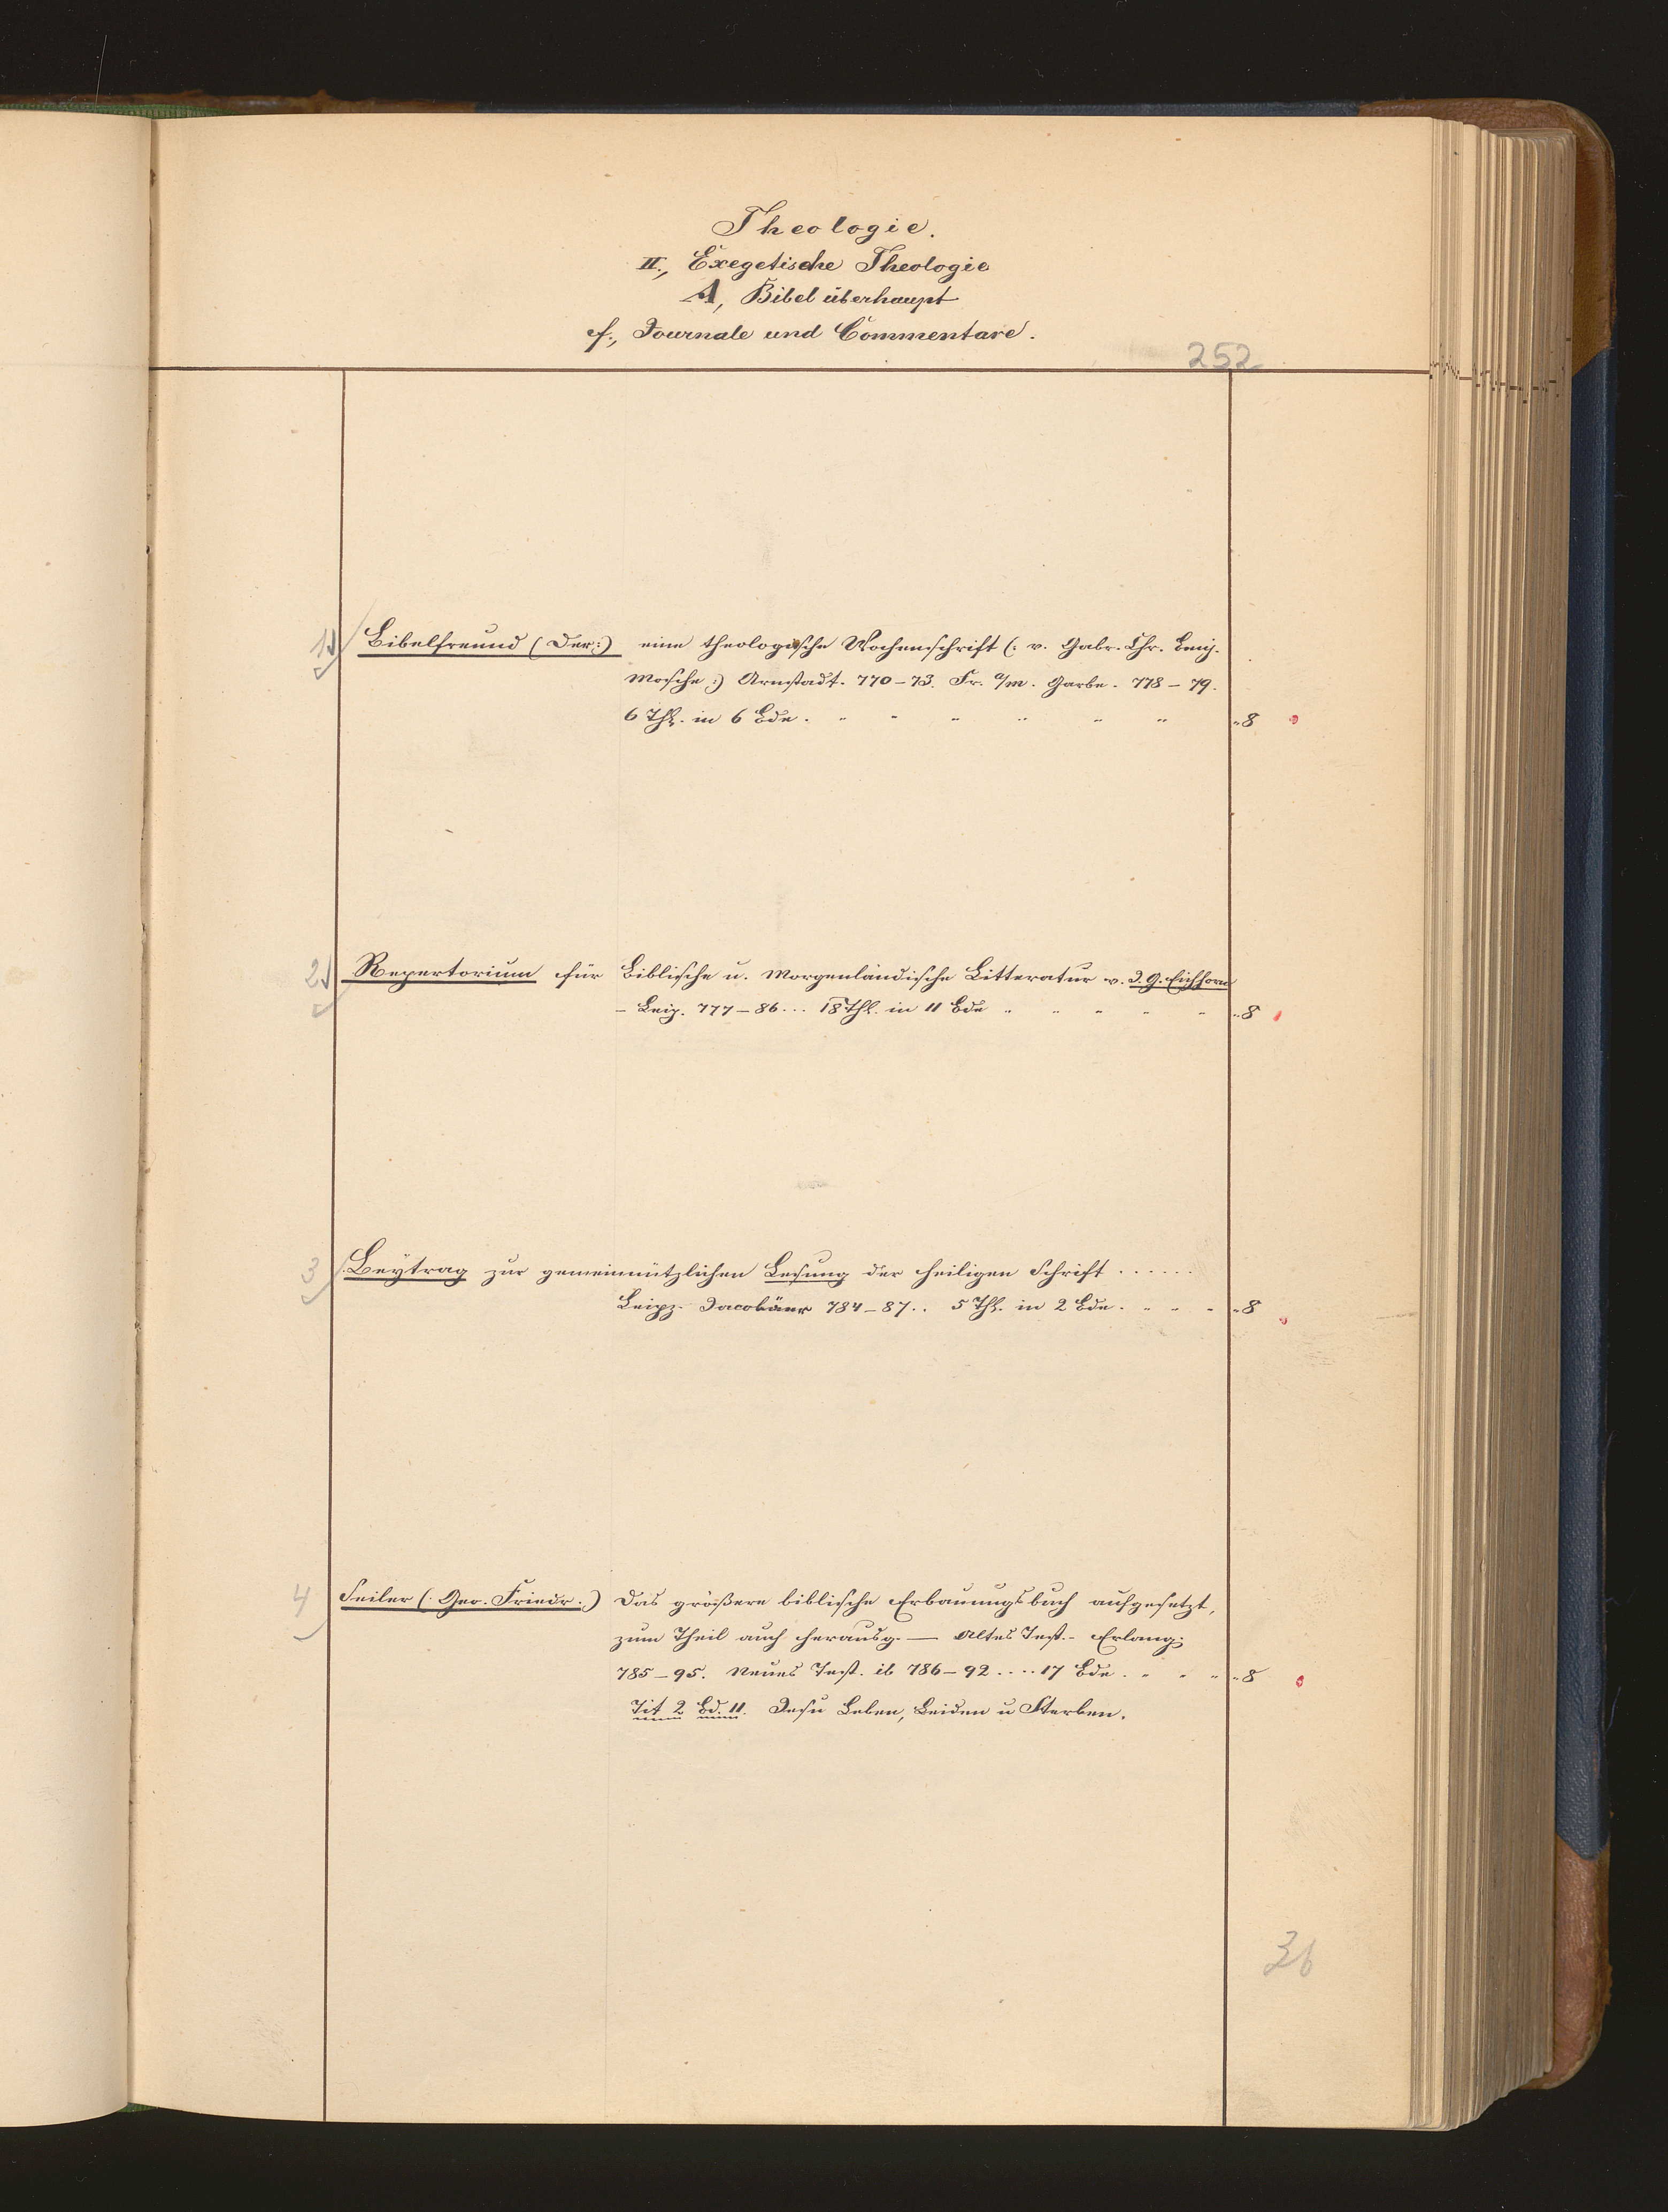 Theologie.
II., Exegetische Theologie
A, Bibel überhaupt
f., Journale und Commentare.
252
1 Bibelfreund (Der:) eine theologische Wochenschrift (: v. Gabr. Chr. Benj.
Mosche :) Arnstadt. 770-73. Fr. a/m. Garbe. 778-79.
6 Thl. in 6 Bde. 8
2 Repertorium für Biblische u. Morgenländische Litteratur v. J. G. Eichhorn
- Leip. 777-86... 18 Thl. in 11 Bde 8
3 Beytrag zur gemeinnützlichen Lesung der heiligen Schrift ......
Leipz. Jacobäer 784-87.. 5 Thl. in 2 Bde. 8
4 Seiler (: Geo. Friedr.:) Das größere biblische Erbauungsbuch aufgesetzt,
zum Theil auch herausg. — Altes Test.- Erlang.
785-95. Neues Test. ib 786-92 .... 17 Bde. 8
Tit 2 Bd. 11. Jesu Leben, Leiden u Sterben.
36